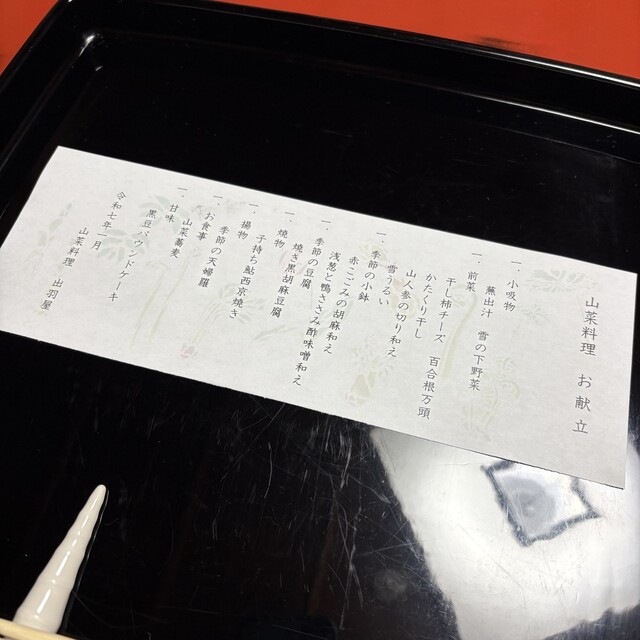 山菜料理　お献立
一．小吸物
蕪出汁　雪の下野菜
一．前菜
干し柿チーズ　百合根万頭
かたくり干し
山人参の切り和え
雪うるい
一．季節の小鉢
赤こごみの胡麻和え
浅葱と鴨ささみ酢味噌和え
一．季節の豆腐
焼き黒胡麻豆腐
一．焼物
子持ち鮎西京焼き
一．揚物
季節の天婦羅
一．お食事
山菜蕎麦
一．甘味
黒豆パウンドケーキ
令和七年一月
山菜料理　出羽屋